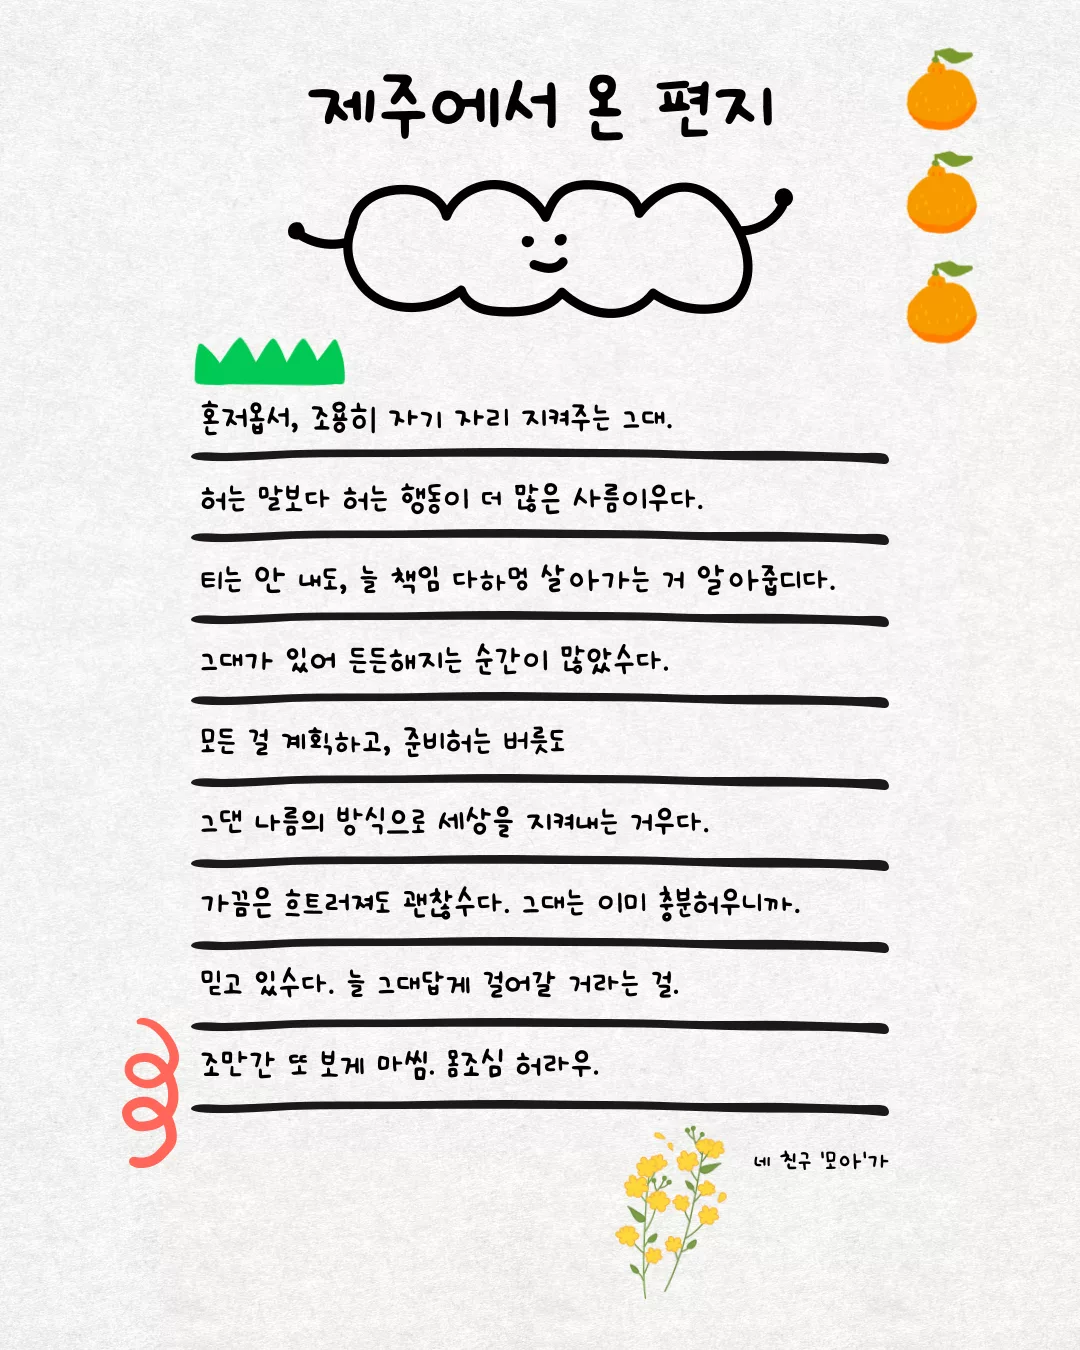 제주에서 온 편지
혼저옵서, 조용히 자기 자리 지켜주는 그대.
허는 말보다 허는 행동이 더 많은 사름이우다.
티는 안 내도, 늘 책임 다하멍 살아가는 거 알아줍디다.
그대가 있어 든든해지는 순간이 많았수다.
모든 걸 계획하고, 준비허는 버릇도
그댄 나름의 방식으로 세상을 지켜내는 거우다.
가끔은 흐트러져도 괜찮수다. 그대는 이미 충분허우니까.
믿고 있수다. 늘 그대답게 걸어갈 거라는 걸.
조만간 또 보게 마씸. 몸조심 허라우.
네 친구 '모아'가